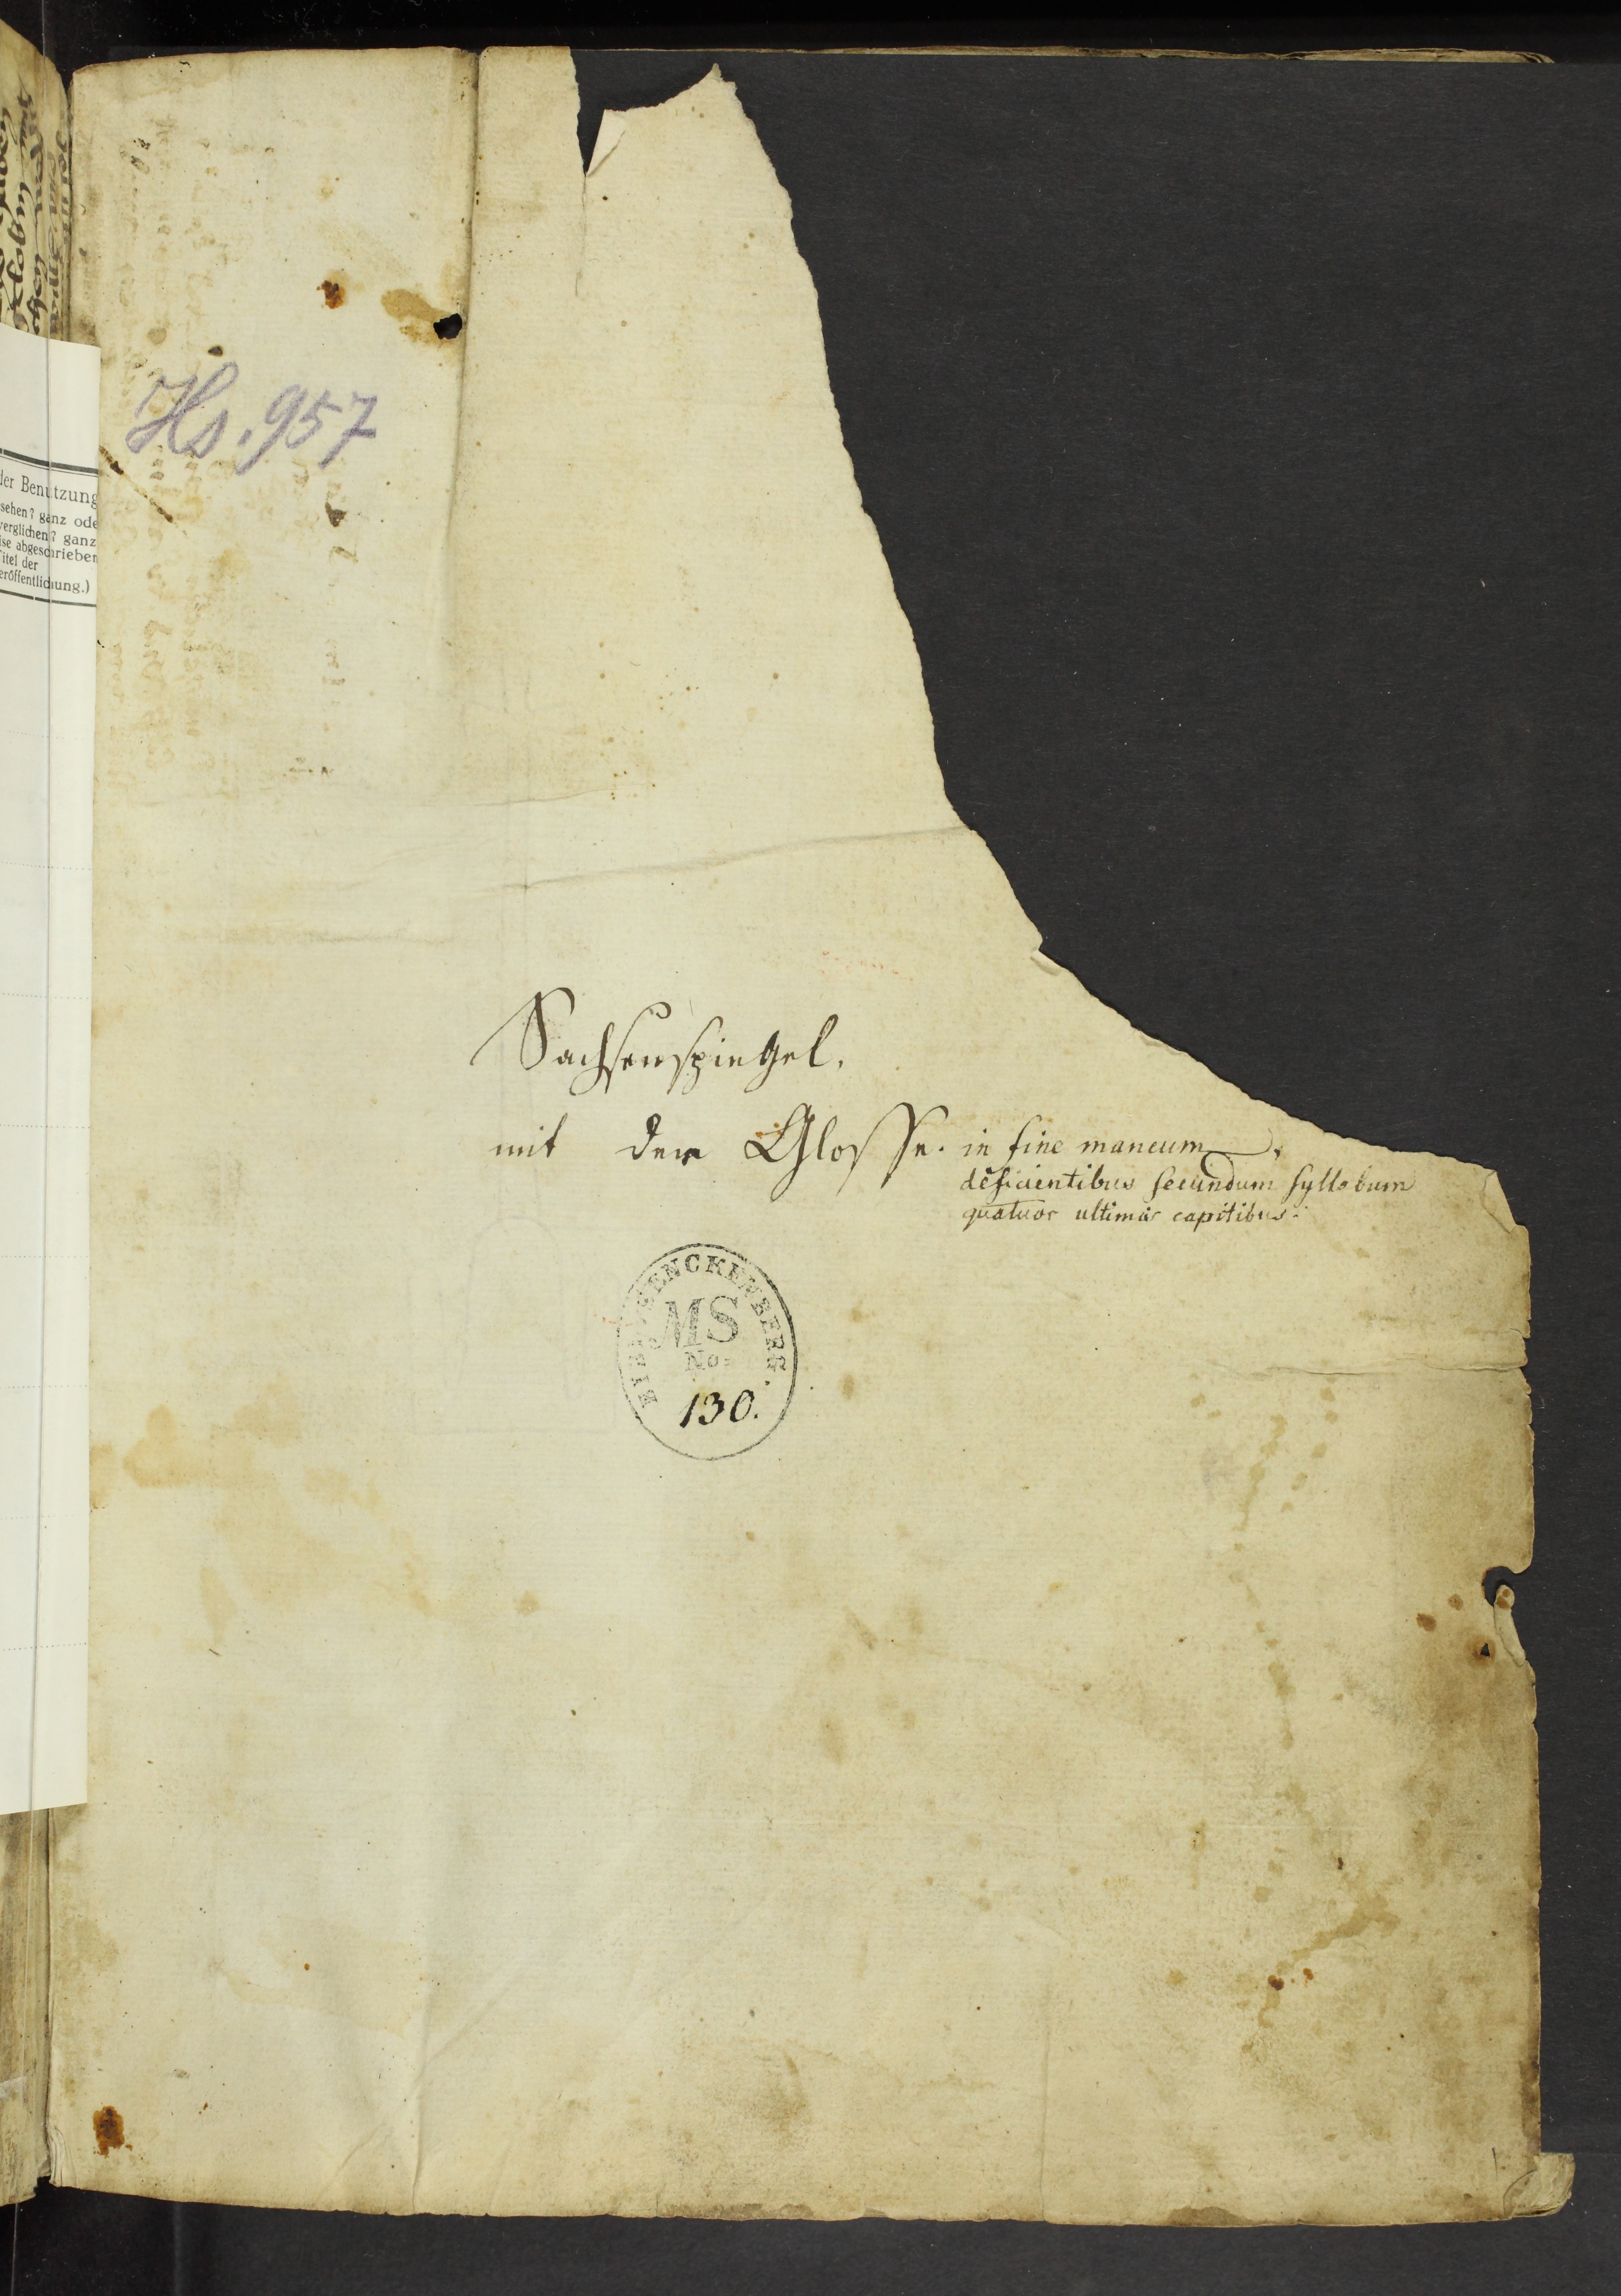 Hs. 957
der Benutzung
sehen? ganz ode
verglichen? ganz
ise abgeschrieben
Titel der
eröffentlichung.)
Sachsenspiegel.
mit der Glosse. in fine mancum,
deficientibus secundum syllabum
quatuor ultimis capitibus.
BIBL. SENCKENBERG.
MS
No.
130.